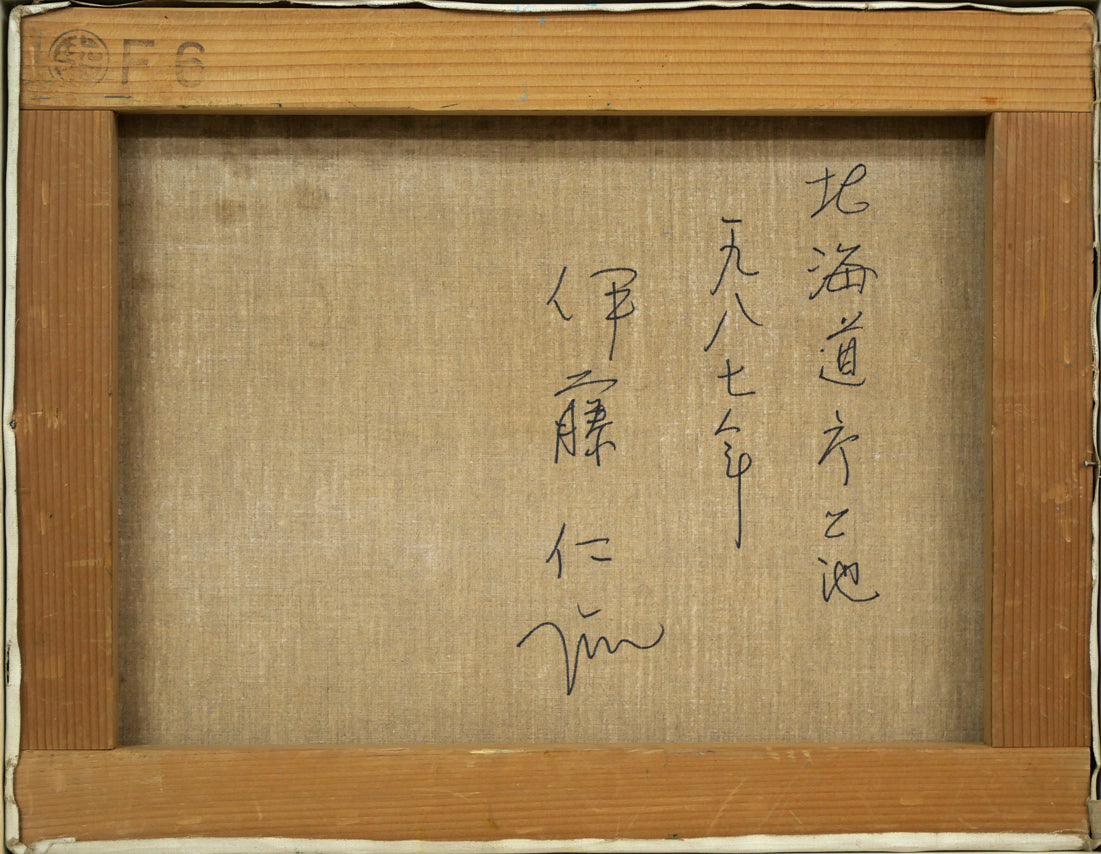 F6
北海道二池
一九八七年
伊藤 仁